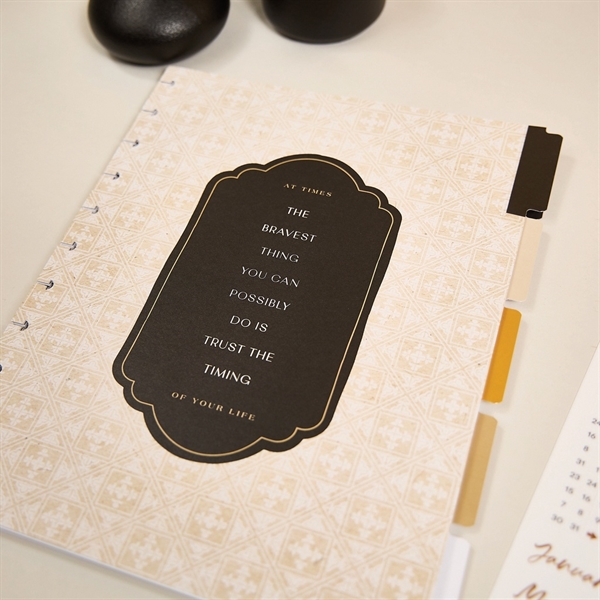 AT TIMES
THE
BRAVEST
THING
YOU CAN
POSSIBLY
DO IS
TRUST THE
TIMING
OF YOUR LIFE
24
16
8
31
23
15 16
7 8
30 31